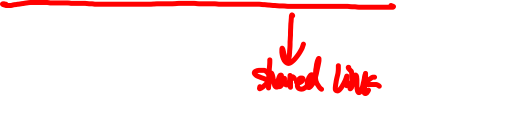 shared link